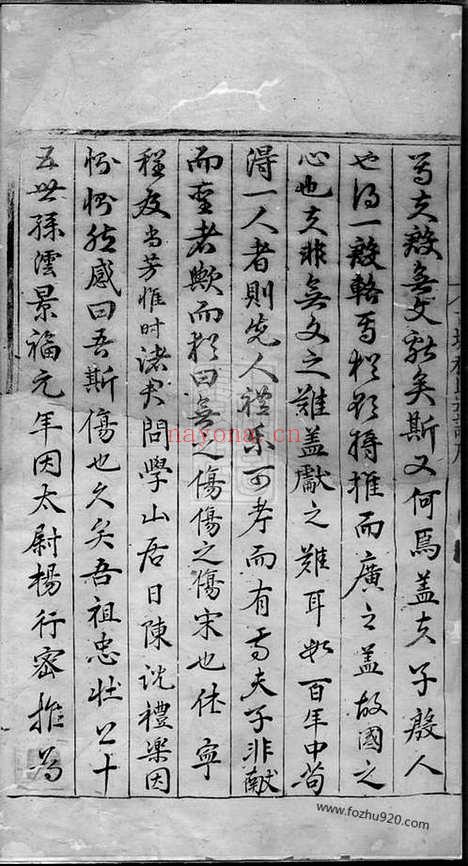 夫殷無文獻矣斯又何焉盖夫子殷人
也得一殷輅焉猶將推而廣之盖故國之
心也夫非無文之難盖獻之難耳如百年中尚
得一人者則先人禮乐可考而有焉夫子非獻
而聖者歟而猶曰無之傷傷之傷宋也仕寧
程鄉時諸君問學山居日陳說禮樂因
惻惻然感曰吾斯傷也久矣吾祖忠壯公十
五世孫澐景福元年因太尉楊行密推為
nayona.cn
www.fozhu920.com